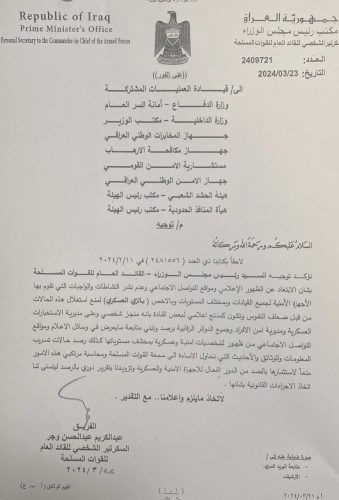 Republic of Iraq
Prime Minister's Office
Personal Secretary to the Commander-in-Chief of the Armed Forces
جمهورية العراق
مكتب رئيس مجلس الوزراء
السكرتير الشخصي للقائد العام للقوات المسلحة
العدد: 2409721
التاريخ: 2024/03/23
((على الفور))
الى/ قيادة العمليات المشتركة
وزارة الدفاع - أمانة السر العام
وزارة الداخلية - مكتب الوزير
جهاز المخابرات الوطني العراقي
جهاز مكافحة الارهاب
مستشارية الامن القومي
جهاز الامن الوطني العراقي
هيئة الحشد الشعبي - مكتب رئيس الهيئة
هيأة المنافذ الحدودية - مكتب رئيس الهيئة
م/ توجيه
السلام عليكم ورحمة الله وبركاته
لاحقاً بكتابنا ذي العدد (٢٤٨١٥٥٦) في ٢٠٢٤/٢/١١
نؤكد توجيه السيد رئيس مجلس الوزراء - القائد العام للقوات المسلحة
بشأن الابتعاد عن الظهور الإعلامي ومواقع التواصل الاجتماعي وعدم نشر النشاطات والواجبات التي تقوم بها
الأجهزة الأمنية لجميع القيادات وبمختلف المستويات وبالاخص (بالزي العسكري) لمنع استغلال هذه الحالات
من قبل ضعاف النفوس وتكون كمنتج اعلامي لبعض القادة بأنه منجز شخصي وعلى مديرية الاستخبارات
العسكرية ومديرية امن الافراد وجميع الدوائر الرقابية برصد وتبني متابعة مايعرض في وسائل الاعلام ومواقع
التواصل الاجتماعي من ظهور لشخصيات امنية وعسكرية بمختلف مستوياتها كذلك رصد حالات تسريب
المعلومات والوثائق والأحاديث التي تحاول الاساءة الى سمعة القوات المسلحة ومحاسبة مرتكبي هذه الامور
منعاً لاستشارها بالضد من الدور الفعال للأجهزة الامنية والعسكرية وتزويدنا بتقرير دوري بالرصد ليتسنى لنا
اتخاذ الاجراءات القانونية بشأنها .
لاتخاذ مايلزم واعلامنا.. مع التقدير .
الفريق
عبدالكريم عبدالحسن وجر
السكرتير الشخصي للقائد العام
للقوات المسلحة
٢٠٢٤/٣/
صورة ضوئية عنه إلى /
- متابعة البريد السري.
- الأرشيف.